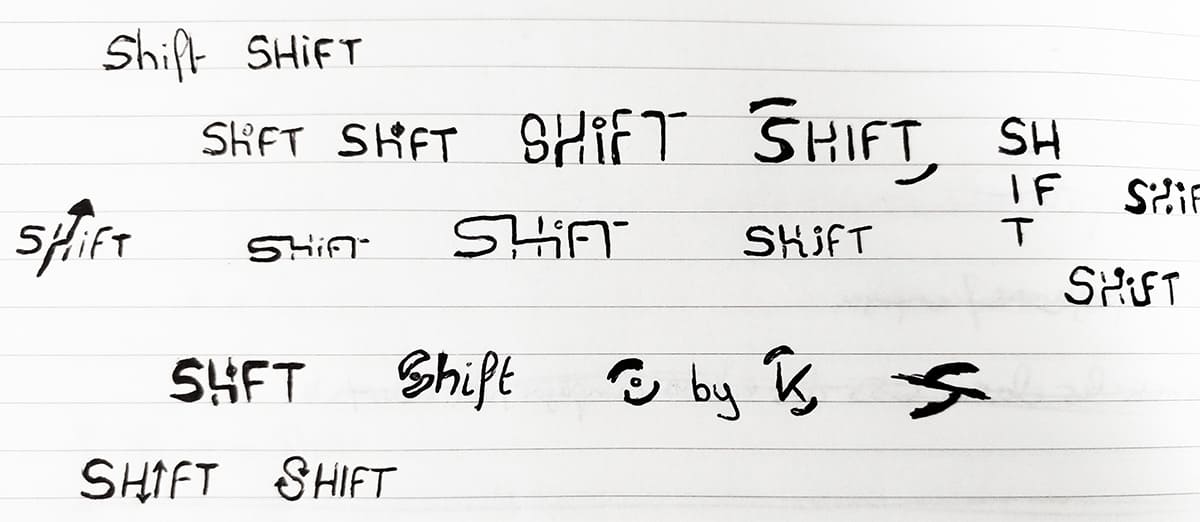 Shift SHiFT
SHiFT SHiFT SHiFT SHIFT SH
IF SHiF
T
SHiFT SHiFT SHiFT SHiFT
SHiFT
SHiFT Shift by K S
SHIFT SHIFT